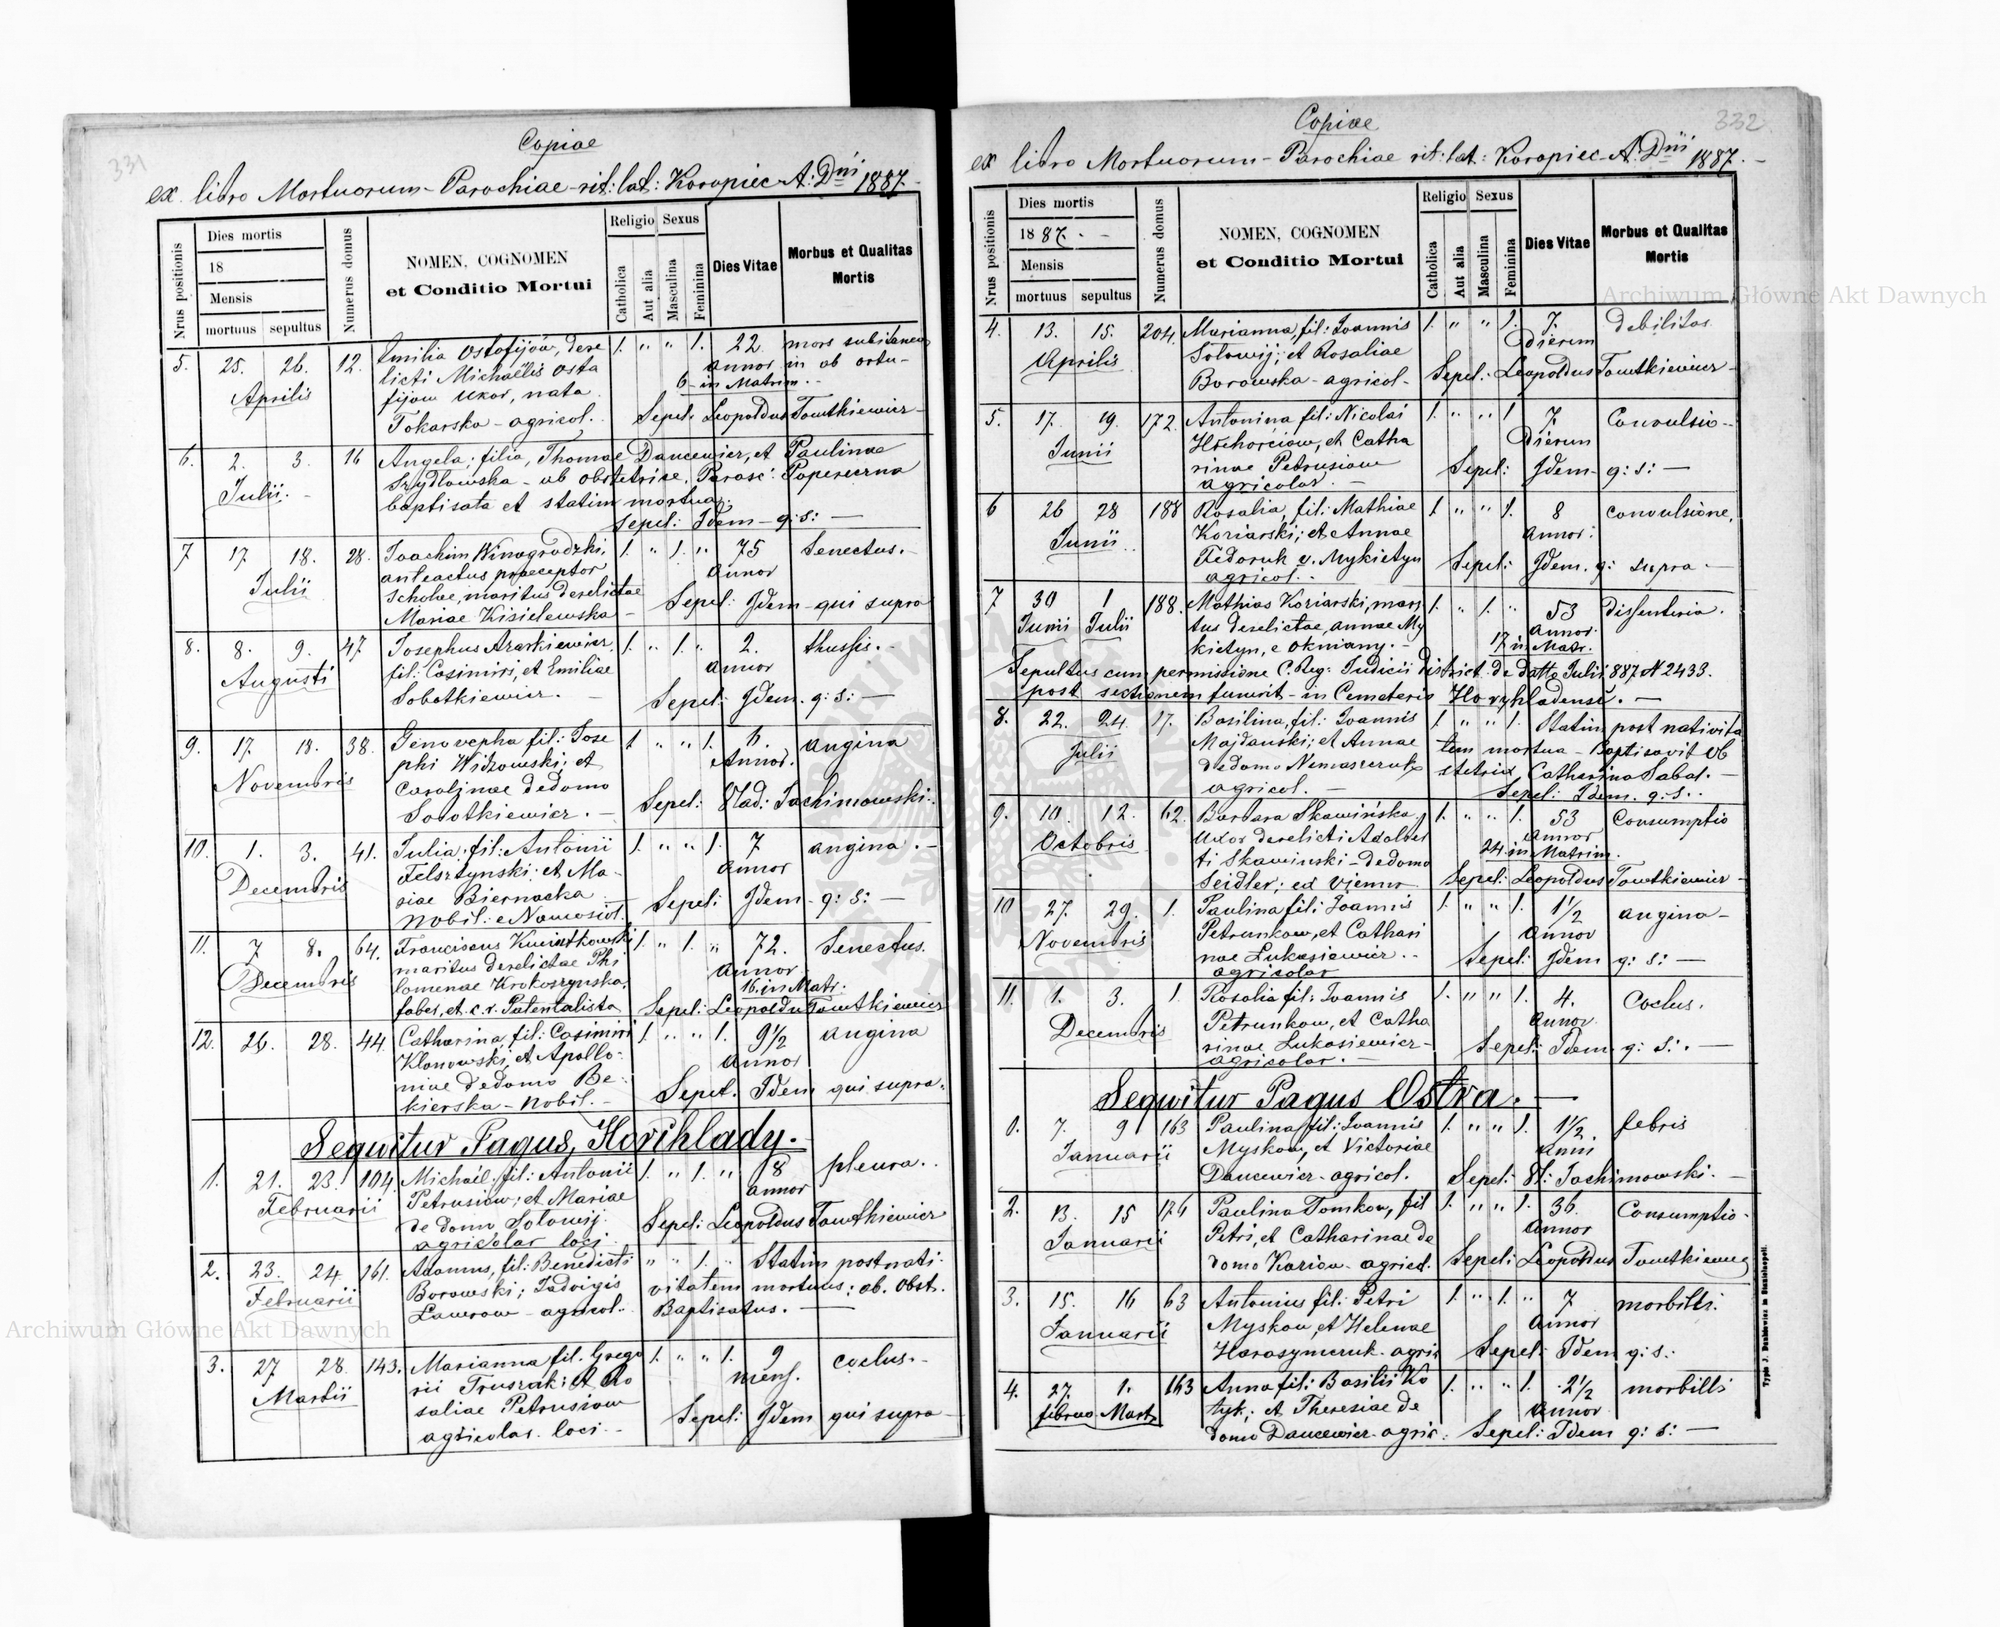 331
Copiae
ex libro Mortuorum - Parochiae - rit: lat: Koropiec - A: Dni 1887.
Nrus positionis
Dies mortis
18
Mensis
mortuus sepultus
Numerus domus
NOMEN, COGNOMEN
et Conditio Mortui
Religio
Catholica
Aut alia
Sexus
Masculina
Feminina
Dies Vitae
Morbus et Qualitas
Mortis
5. 25. 26. 12. Emilia Ostafijów, dere 1. " " 1. 22 mors subitanea
licti Michaëlis Osta annor in ob ortu-
Aprilis fijow uxor, nata 6 in Matrim.
Tokarska - agricol. Sepel: Leopoldus Tomtkiewicz
6. 2. 3. 16 Angela; filia, Thomae Dancewicz, et Paulinae
Julii. Szydlowska - ab obstetrice, Parasc: Popereczna
baptisata et statim mortua.
Sepel: Idem - q: s: —
7 17 18. 28. Joachim Winogrodzki, 1. " 1. " 75 Senectus.
Julii anteactus praeceptor annor
Scholae, maritus derelictae
Mariae Kisielewska - Sepel: Idem - qui supra
8. 8. 9. 47 Josephus Ararkiewicz, 1. " 1. " 2. thussis.
Augusti fil: Casimiri, et Emiliae annor
Sobotkiewicz. Sepel: Idem. q: s: —
9. 17. 18. 38. Genovepha fil: Jose 1 " " 1. 6. angina
Novembris phi Wichowski; et Annor.
Carolinae dedomo
Sobotkiewicz. Sepel: Vlad: Jachimowski.
10. 1. 3. 41. Julia, fil: Antonii 1. " " 1. 7 angina.
Decembris Felsztynski; et Ma- annor
riae Biernacka Sepel: Idem - q: s: —
nobil: e Namosiol.
11. 7 8. 64. Franciscus Kwiatkowski 1. " 1. " 72. Senectus.
Decembris maritus derelictae Phi annor
lomenae Krokoszynska, 16. in Matr:
faber, et. c. r. Patentalista Sepel: Leopoldus Tomtkiewicz
12. 26. 28. 44. Catharina, fil: Casimiri 1. " " 1. 9½ angina
Klonowski, et Apollo- annor
niae dedomo Be-
kierska - nobil. Sepel. Idem qui supra.
Sequitur Pagus, Horihlady.
1. 21. 23. 104. Michaël. fil: Antonii 1. " 1. " 8 pleura.
Februarii Petrusiow; et Mariae annor
de domo Solowij. Sepel: Leopoldus Tomtkiewicz
agricolar loci
2. 23. 24. 161. Adamus, fil: Benedicti " " 1. " Statim post nati-
Februarii Borowski; Jadvigis vitatem mortuus; ab. obst.
Lawrow - agricol. Baptisatus. —
3. 27 28. 143. Marianna fil. Grego 1. " " 1. 9 coclus.
Martii rii Truszak: et Ro mens.
saliae Petrusiow Sepel: Idem qui supra
agricolar. loci. -
332
Copiae
ex libro Mortuorum - Parochiae rit: lat: Koropiec - A: Dni 1887.
Nrus positionis
Dies mortis
1887.
Mensis
mortuus sepultus
Numerus domus
NOMEN, COGNOMEN
et Conditio Mortui
Religio
Catholica
Aut alia
Sexus
Masculina
Feminina
Dies Vitae
Morbus et Qualitas
Mortis
4. 13. 15. 204. Marianna, fil: Joannis 1. " " 1. 7. debilitas
Aprilis Solowij; et Rosaliae Dierum
Borowska - agricol. Sepel: Leopoldus Tomtkiewicz
5. 17. 19. 172. Antonina fil: Nicolai 1. " " 1 7. Convulsio
Junii Hlehorciow, et Catha Dierum
rinae Petrusiow Sepel: Idem q: s: —
agricolar. -
6 26 28 188 Rosalia, fil: Mathiae 1. " " 1. 8 convulsione,
Junii Koriarski; et Annae annor:
Fedoruk v. Mykietyn Sepel: Idem. q: supra.
agricol.
7 30 1 188. Mathias Koriarski, mari 1. " 1. " 53 dissenteria.
Junii Julii tus derelictae, annae My annor.
kietyn, e Okniany. - 17 in Matr:
Sepultus cum permissione C. Reg: Judicii district de datto Julii 887 N 2433.
post sectionem funerit - in Cemeteris Horyhladensi. -
8. 22. 24. 17. Basilina, fil: Joannis 1. " " 1. Statim post nativita
Julii Majdanski; et Annae tem mortua - Baptisavit Ob
dedomo Nemaszczuk stetrix, Catharina Sabat. -
agricol. — Sepel: Idem. q: s..
9. 10. 12. 62. Barbara Skawińska, 1. " " 1. 53 Consumptio
Octobris uxor derelicti Adalber annor
ti Skawinski - dedomo 24 in Matrim.
Seidler; ex Vienna Sepel: Leopoldus Tomtkiewicz
10 27. 29. 1. Paulina fil: Joannis 1. " " 1. 1½ angina
Novembris Petrunkow, et Cathari annor
nae Lukasiewicz. Sepel: Idem q: s: —
agricolar
11. 1. 3. 1. Rosalia fil: Joannis 1. " " 1. 4. Coclus.
Decembris Petrunkow, et Catha annor.
rinae Lukasiewicz Sepel: Idem q: s:. —
agricolar. -
Sequitur Pagus Ostra. —
1. 7. 9 163 Paulina, fil: Joannis 1. " " 1. 1½ febris
Januarii Myskow, et Victoriae anni
Dancewicz - agricol. Sepel: Vl: Jachimowski. —
2. 13. 15 126 Paulina Tomkow, fil 1. " " 1. 36. Consumptio
Januarii Petri, et Catharinae de annor
domo Koziow - agricol. Sepel: Leopoldus Tomtkiewicz
3. 15. 16 63 Antonius fil: Petri 1. " 1. " 7 morbilli.
Januarii Myskow, et Helenae annor
Harasymczuk - agric Sepel: Idem q: s:
4. 27. 1. 163 Anna fil: Basilii Ko 1. " " 1. 2½ morbilli
februa Mart tyk; et Theresiae de annor
domo Dancewicz - agric: Sepel: Idem q: s: —
Typis J. Dankiewicz in Stanislaopoli.
Archiwum Główne Akt Dawnych
Archiwum Główne Akt Dawnych